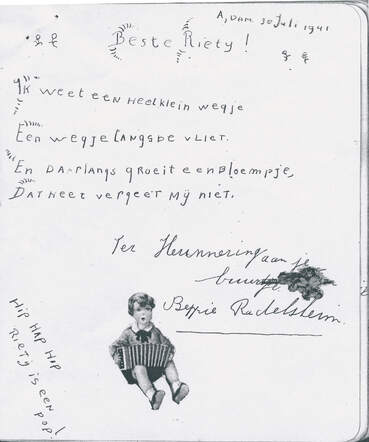 A,dam 30 Juli 1941
Beste Riety!
Ik weet een heel klein wegje
Een wegje langs de vliet.
En daarlangs groeit een bloempje,
Dat heet vergeet mij niet.
Ter Herinnering aan je
buurtje
Beppie Radelsheim.
HIP HAP HIP
Riety is een
pop!